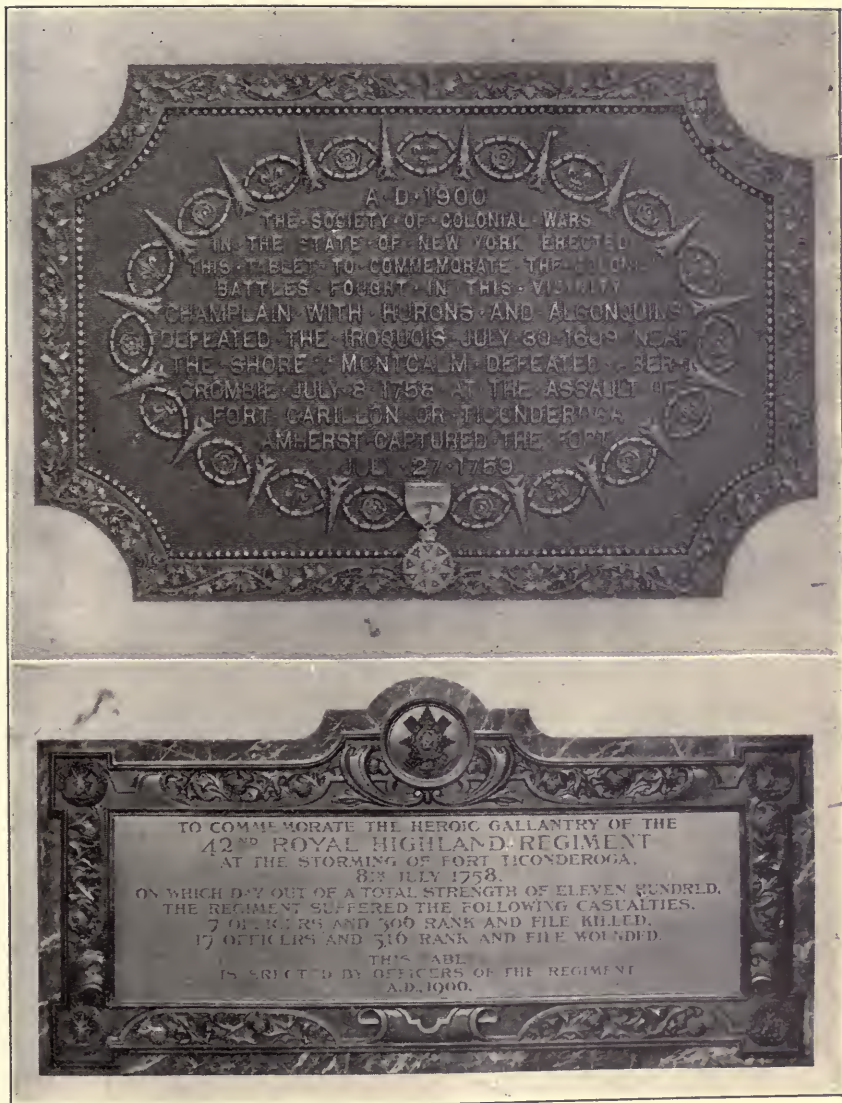 A·D·1900
THE·SOCIETY·OF·COLONIAL·WARS
IN·THE·STATE·OF·NEW YORK ERECTED
THIS·TABLET·TO·COMMEMORATE·THE
BATTLES·FOUGHT·IN·THIS·VICINITY
CHAMPLAIN·WITH·HURONS·AND·ALGONQUINS
DEFEATED·THE·IROQUOIS·JULY·30·1609·NEAR
THE·SHORE MONTCALM·DEFEATED
CROMBIE·JULY·8·1758·AT·THE·ASSAULT·OF
FORT·CARILLON·OR·TICONDEROGA
AMHERST·CAPTURED·THE·FORT
JULY·27·1759
TO COMMEMORATE THE HEROIC GALLANTRY OF THE
42ND ROYAL HIGHLAND REGIMENT
AT THE STORMING OF FORT TICONDEROGA,
8TH JULY 1758.
ON WHICH DAY OUT OF A TOTAL STRENGTH OF ELEVEN HUNDRED,
THE REGIMENT SUFFERED THE FOLLOWING CASUALTIES.
7 OFFICERS AND 306 RANK AND FILE KILLED.
17 OFFICERS AND 316 RANK AND FILE WOUNDED.
THIS
IS ERECTED BY OFFICERS OF THE REGIMENT
A.D., 1900.